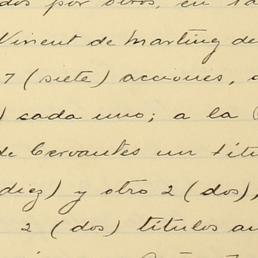 dos por otros, en la
Vincent de Marting de
7 (siete) acciones, a
) cada uno; a la (
de Cervantes un títu
diez) y otro 2 (dos),
2 (dos) títulos au